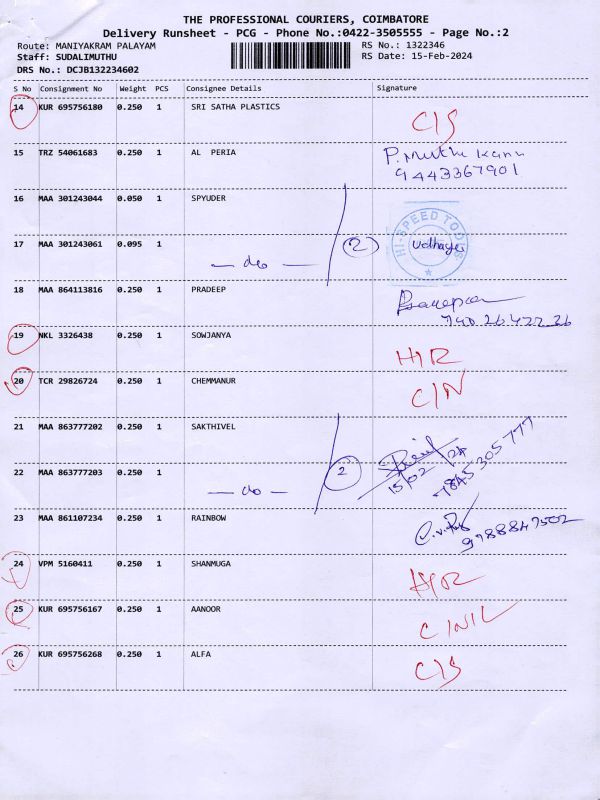 THE PROFESSIONAL COURIERS, COIMBATORE
Delivery Runsheet - PCG - Phone No.:0422-3505555 - Page No.:2
Route: MANIYAKRAM PALAYAM RS No.: 1322346
Staff: SUDALIMUTHU RS Date: 15-Feb-2024
DRS No.: DCJB132234602
S No Consignment No Weight PCS Consignee Details Signature
14 KUR 695756180 0.250 1 SRI SATHA PLASTICS C/S
15 TRZ 54061683 0.250 1 AL PERIA P. Muthu
9443367901
16 MAA 301243044 0.050 1 SPYUDER
HI-SPEED TOOLS
17 MAA 301243061 0.095 1 — do — 2 Udhaya
18 MAA 864113816 0.250 1 PRADEEP
19 NKL 3326438 0.250 1 SOWJANYA H/R
20 TCR 29826724 0.250 1 CHEMMANUR C/N
21 MAA 863777202 0.250 1 SAKTHIVEL
22 MAA 863777203 0.250 1 — do — 2 15/02/24
7845305777
23 MAA 861107234 0.250 1 RAINBOW
9788847502
24 VPM 5160411 0.250 1 SHANMUGA H/R
25 KUR 695756167 0.250 1 AANOOR C/N/L
26 KUR 695756268 0.250 1 ALFA C/S